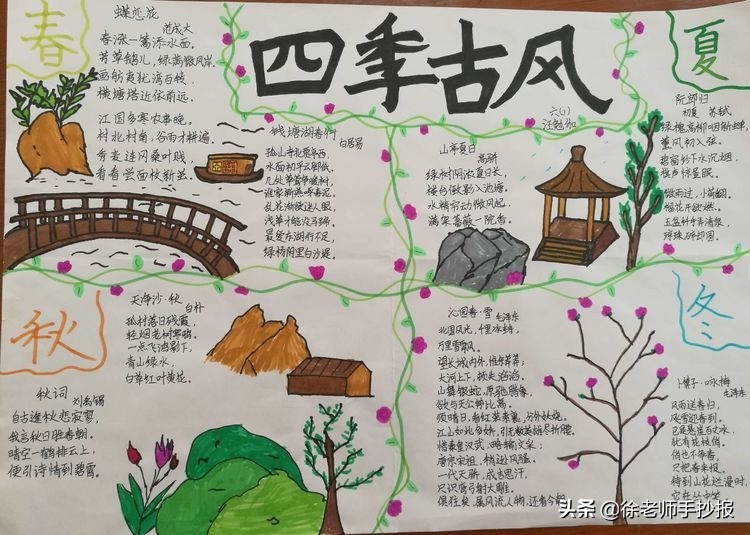 春
蝶恋花
范成大
春涨一篙添水面。
芳草鹅儿，绿满微风岸。
画舫夷犹湾百转，
横塘塔近依前远。
江国多寒农事晚。
村北村南，谷雨才耕遍。
秀麦连冈桑叶贱，
看看尝面收新茧。
四季古风
六(1)
钱塘湖春行
白居易
孤山寺北贾亭西，
水面初平云脚低。
几处早莺争暖树，
谁家新燕啄春泥。
乱花渐欲迷人眼，
浅草才能没马蹄。
最爱东湖行不足，
绿杨阴里白沙堤。
夏
山亭夏日
高骈
绿树阴浓夏日长，
楼台倒影入池塘。
水精帘动微风起，
满架蔷薇一院香。
阮郎归
初夏 苏轼
绿槐高柳咽新蝉，
薰风初入弦。
碧窗纱下水沉烟，
棋声惊昼眠。
微雨过，小荷翻。
榴花开欲然。
玉盆纤手弄清泉，
琼珠碎却圆。
秋
天净沙·秋
白朴
孤村落日残霞，
轻烟老树寒鸦，
一点飞鸿影下。
青山绿水，
白草红叶黄花。
秋词
刘禹锡
自古逢秋悲寂寥，
我言秋日胜春朝。
晴空一鹤排云上，
便引诗情到碧霄。
冬
沁园春·雪
毛泽东
北国风光，千里冰封，
万里雪飘。
望长城内外，惟余莽莽；
大河上下，顿失滔滔。
山舞银蛇，原驰蜡象，
欲与天公试比高。
须晴日，看红装素裹，分外妖娆。
江山如此多娇，引无数英雄尽折腰。
惜秦皇汉武，略输文采；
唐宗宋祖，稍逊风骚。
一代天骄，成吉思汗，
只识弯弓射大雕。
俱往矣，数风流人物，还看今朝
卜算子·咏梅
毛泽东
风雨送春归，
飞雪迎春到。
已是悬崖百丈冰，
犹有花枝俏。
俏也不争春，
只把春来报。
待到山花烂漫时，
它在丛中笑
头条 @徐老师手抄报